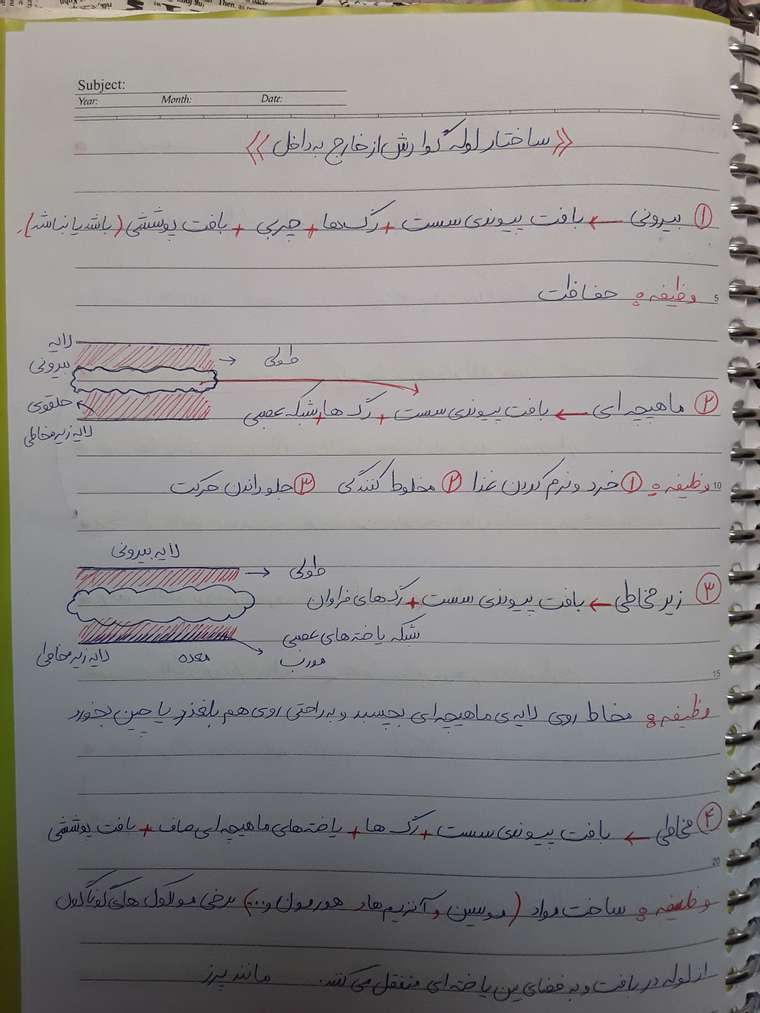 Subject:
Year: Month: Date:
《 ساختار لوله گوارش از خارج به داخل 》
① بیرونی ← بافت پیوندی سست + رگ ها + چربی + بافت پوششی (باشد یا نباشد).
5
وظیفه: حفاظت
لایه بیرونی
طولی
حلقوی
لایه زیر مخاطی
② ماهیچه ای ← بافت پیوندی سست + رگ ها + شبکه عصبی
10
وظیفه: ① خرد و نرم کردن غذا ② مخلوط کنندگی ③ جلو راندن حرکت
لایه بیرونی
طولی
③ زیر مخاطی ← بافت پیوندی سست + رگ های فراوان
شبکه یاخته های عصبی
لایه زیر مخاطی معده مورب
15
وظیفه: مخاط روی لایه ی ماهیچه ای بچسبد و به راحتی روی هم بلغزد یا چین بخورد
④ مخاطی ← بافت پیوندی سست + رگ ها + یاخته های ماهیچه ای صاف + بافت پوششی
20
وظیفه: ساخت مواد (موسین و آنزیم ها و هورمون و...) برخی مولکول های گوناگون
از لوله دریافت و به فضای بین یاخته ای منتقل می کنند. مانند پرز